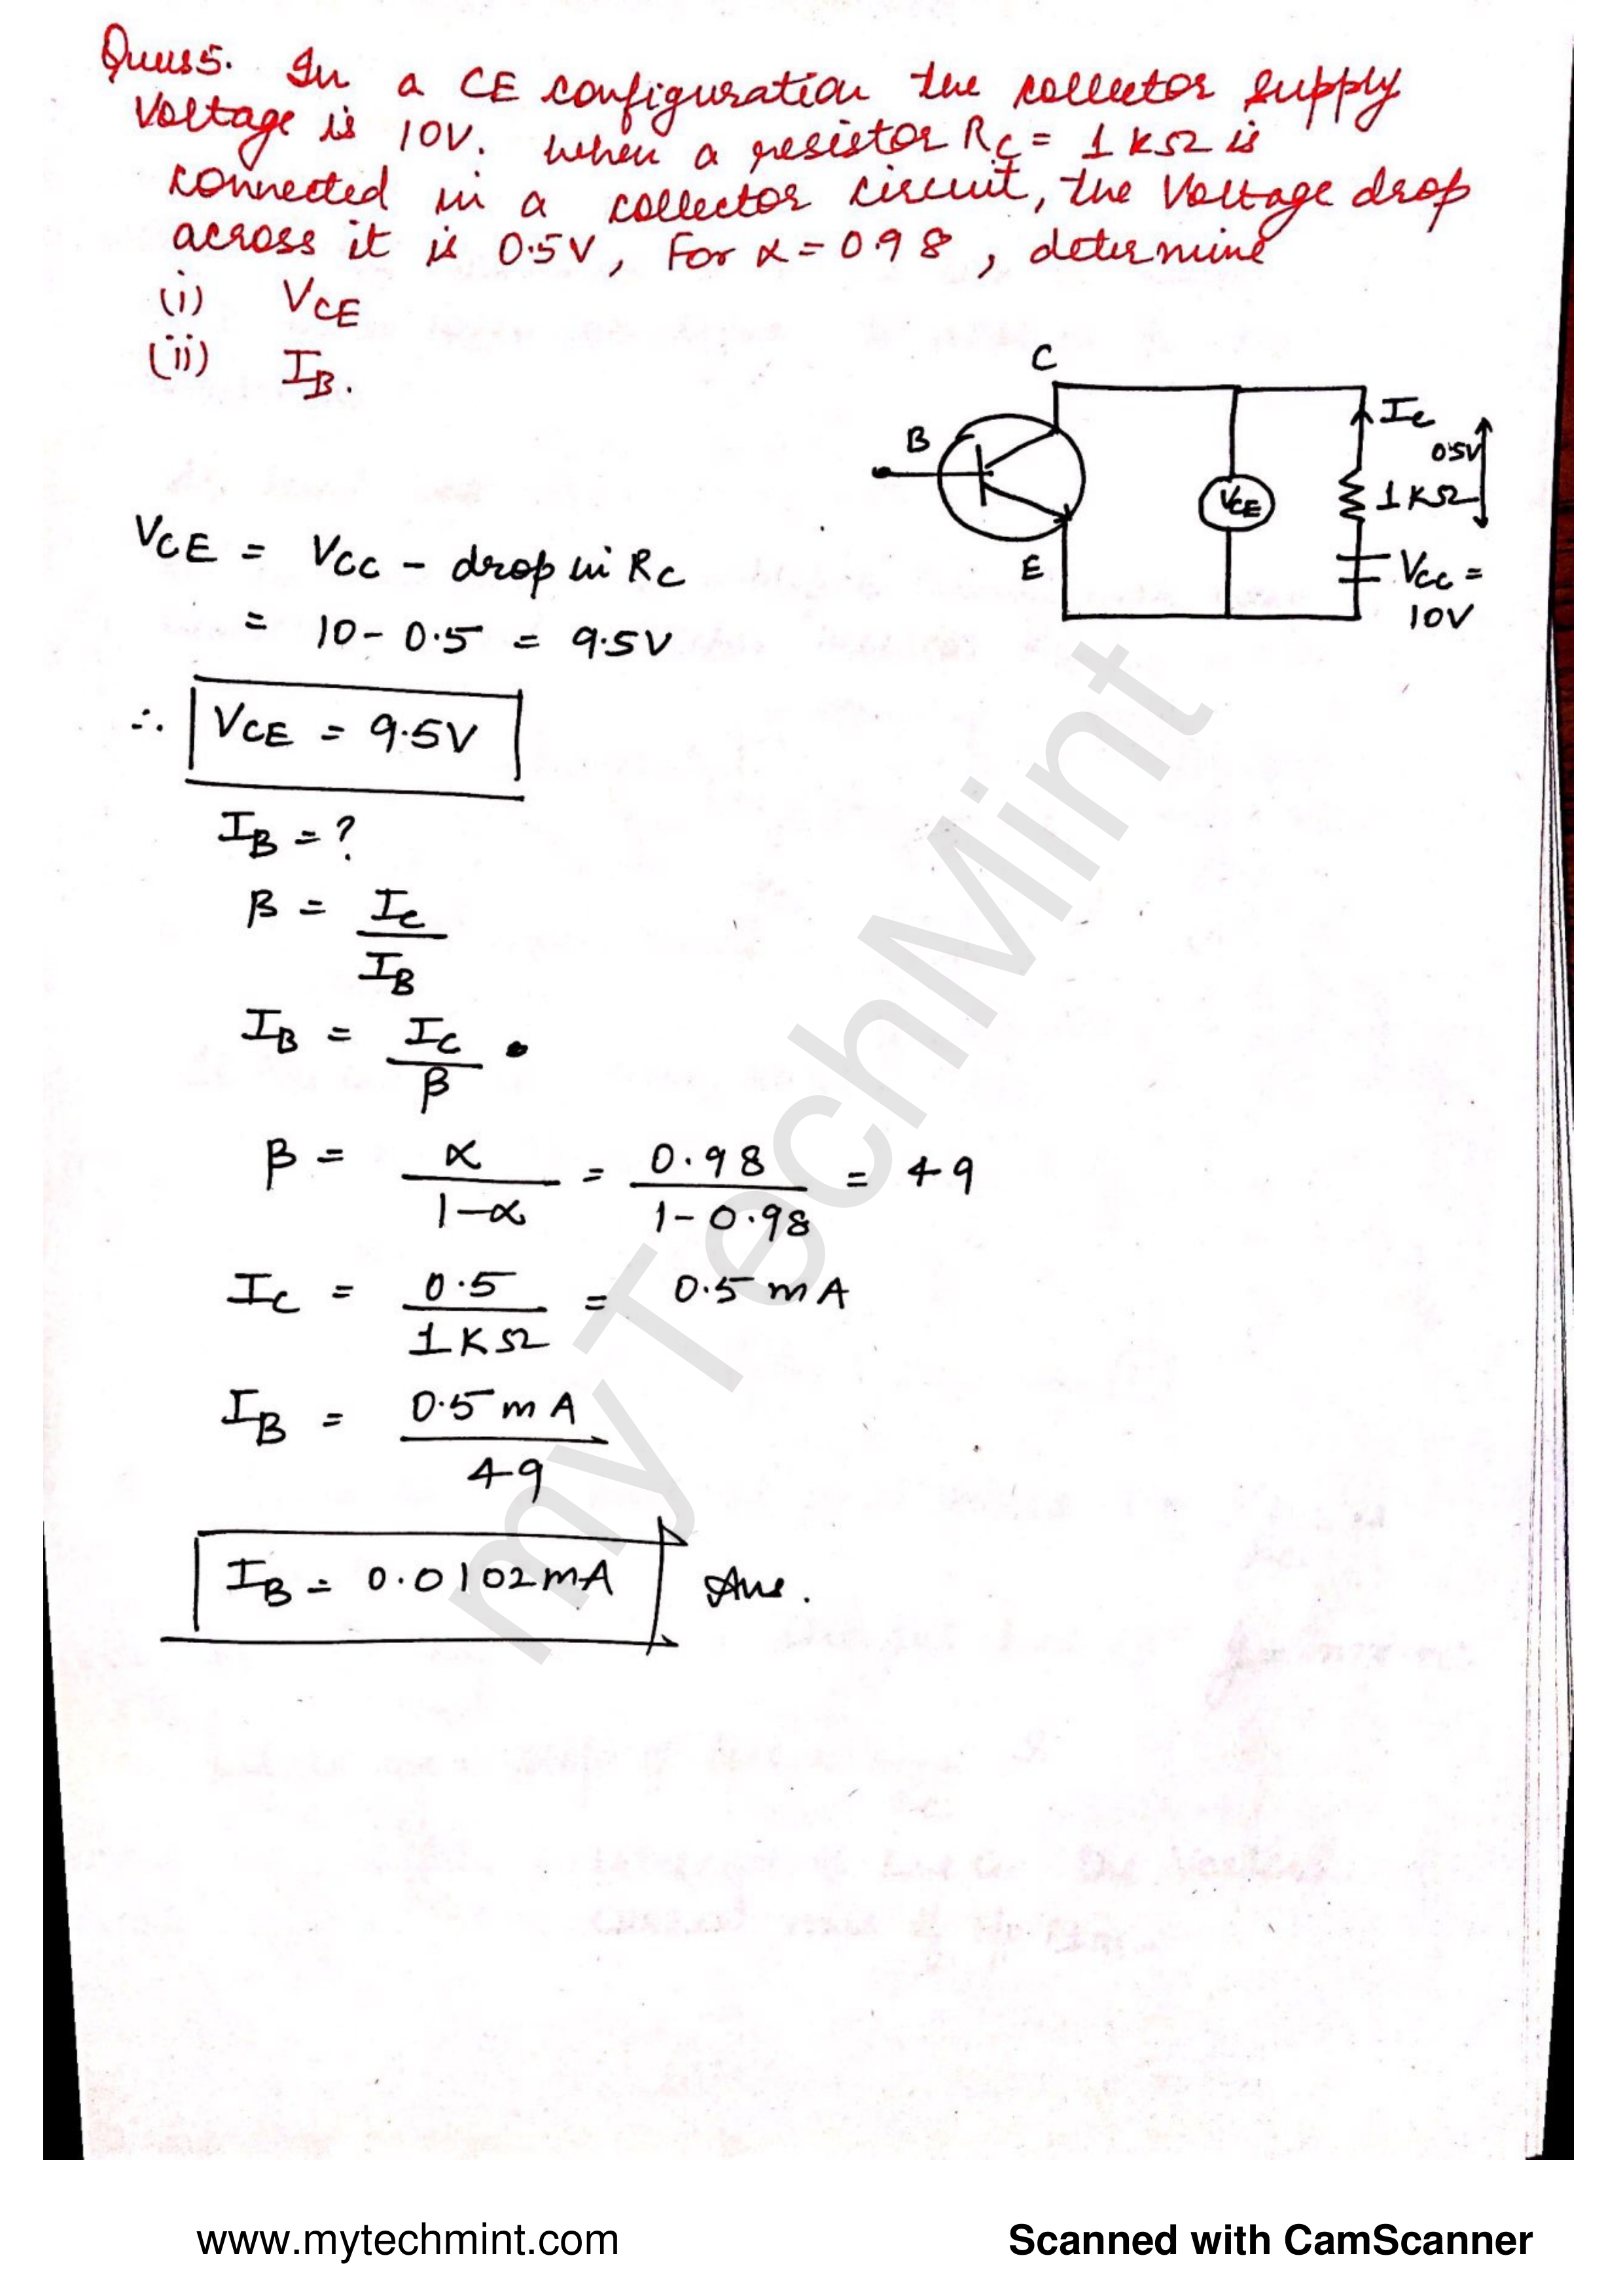 Ques5. In a CE configuration the collector supply
Voltage is 10V. when a resistor RC = 1 kΩ is
connected in a collector circuit, the Voltage drop
across it is 0.5V, For α = 0.98, determine
(i) VCE
(ii) IB.
C
B
E
VCE
IC
0.5V
1KΩ
VCC =
10V
VCE = VCC - drop in RC
= 10 - 0.5 = 9.5V
∴ VCE = 9.5V
IB = ?
β = IC / IB
IB = IC / β
β = α / 1-α = 0.98 / 1-0.98 = 49
IC = 0.5 / 1KΩ = 0.5 mA
IB = 0.5 mA / 49
IB = 0.0102mA Ans.
myTechMint
www.mytechmint.com
Scanned with CamScanner